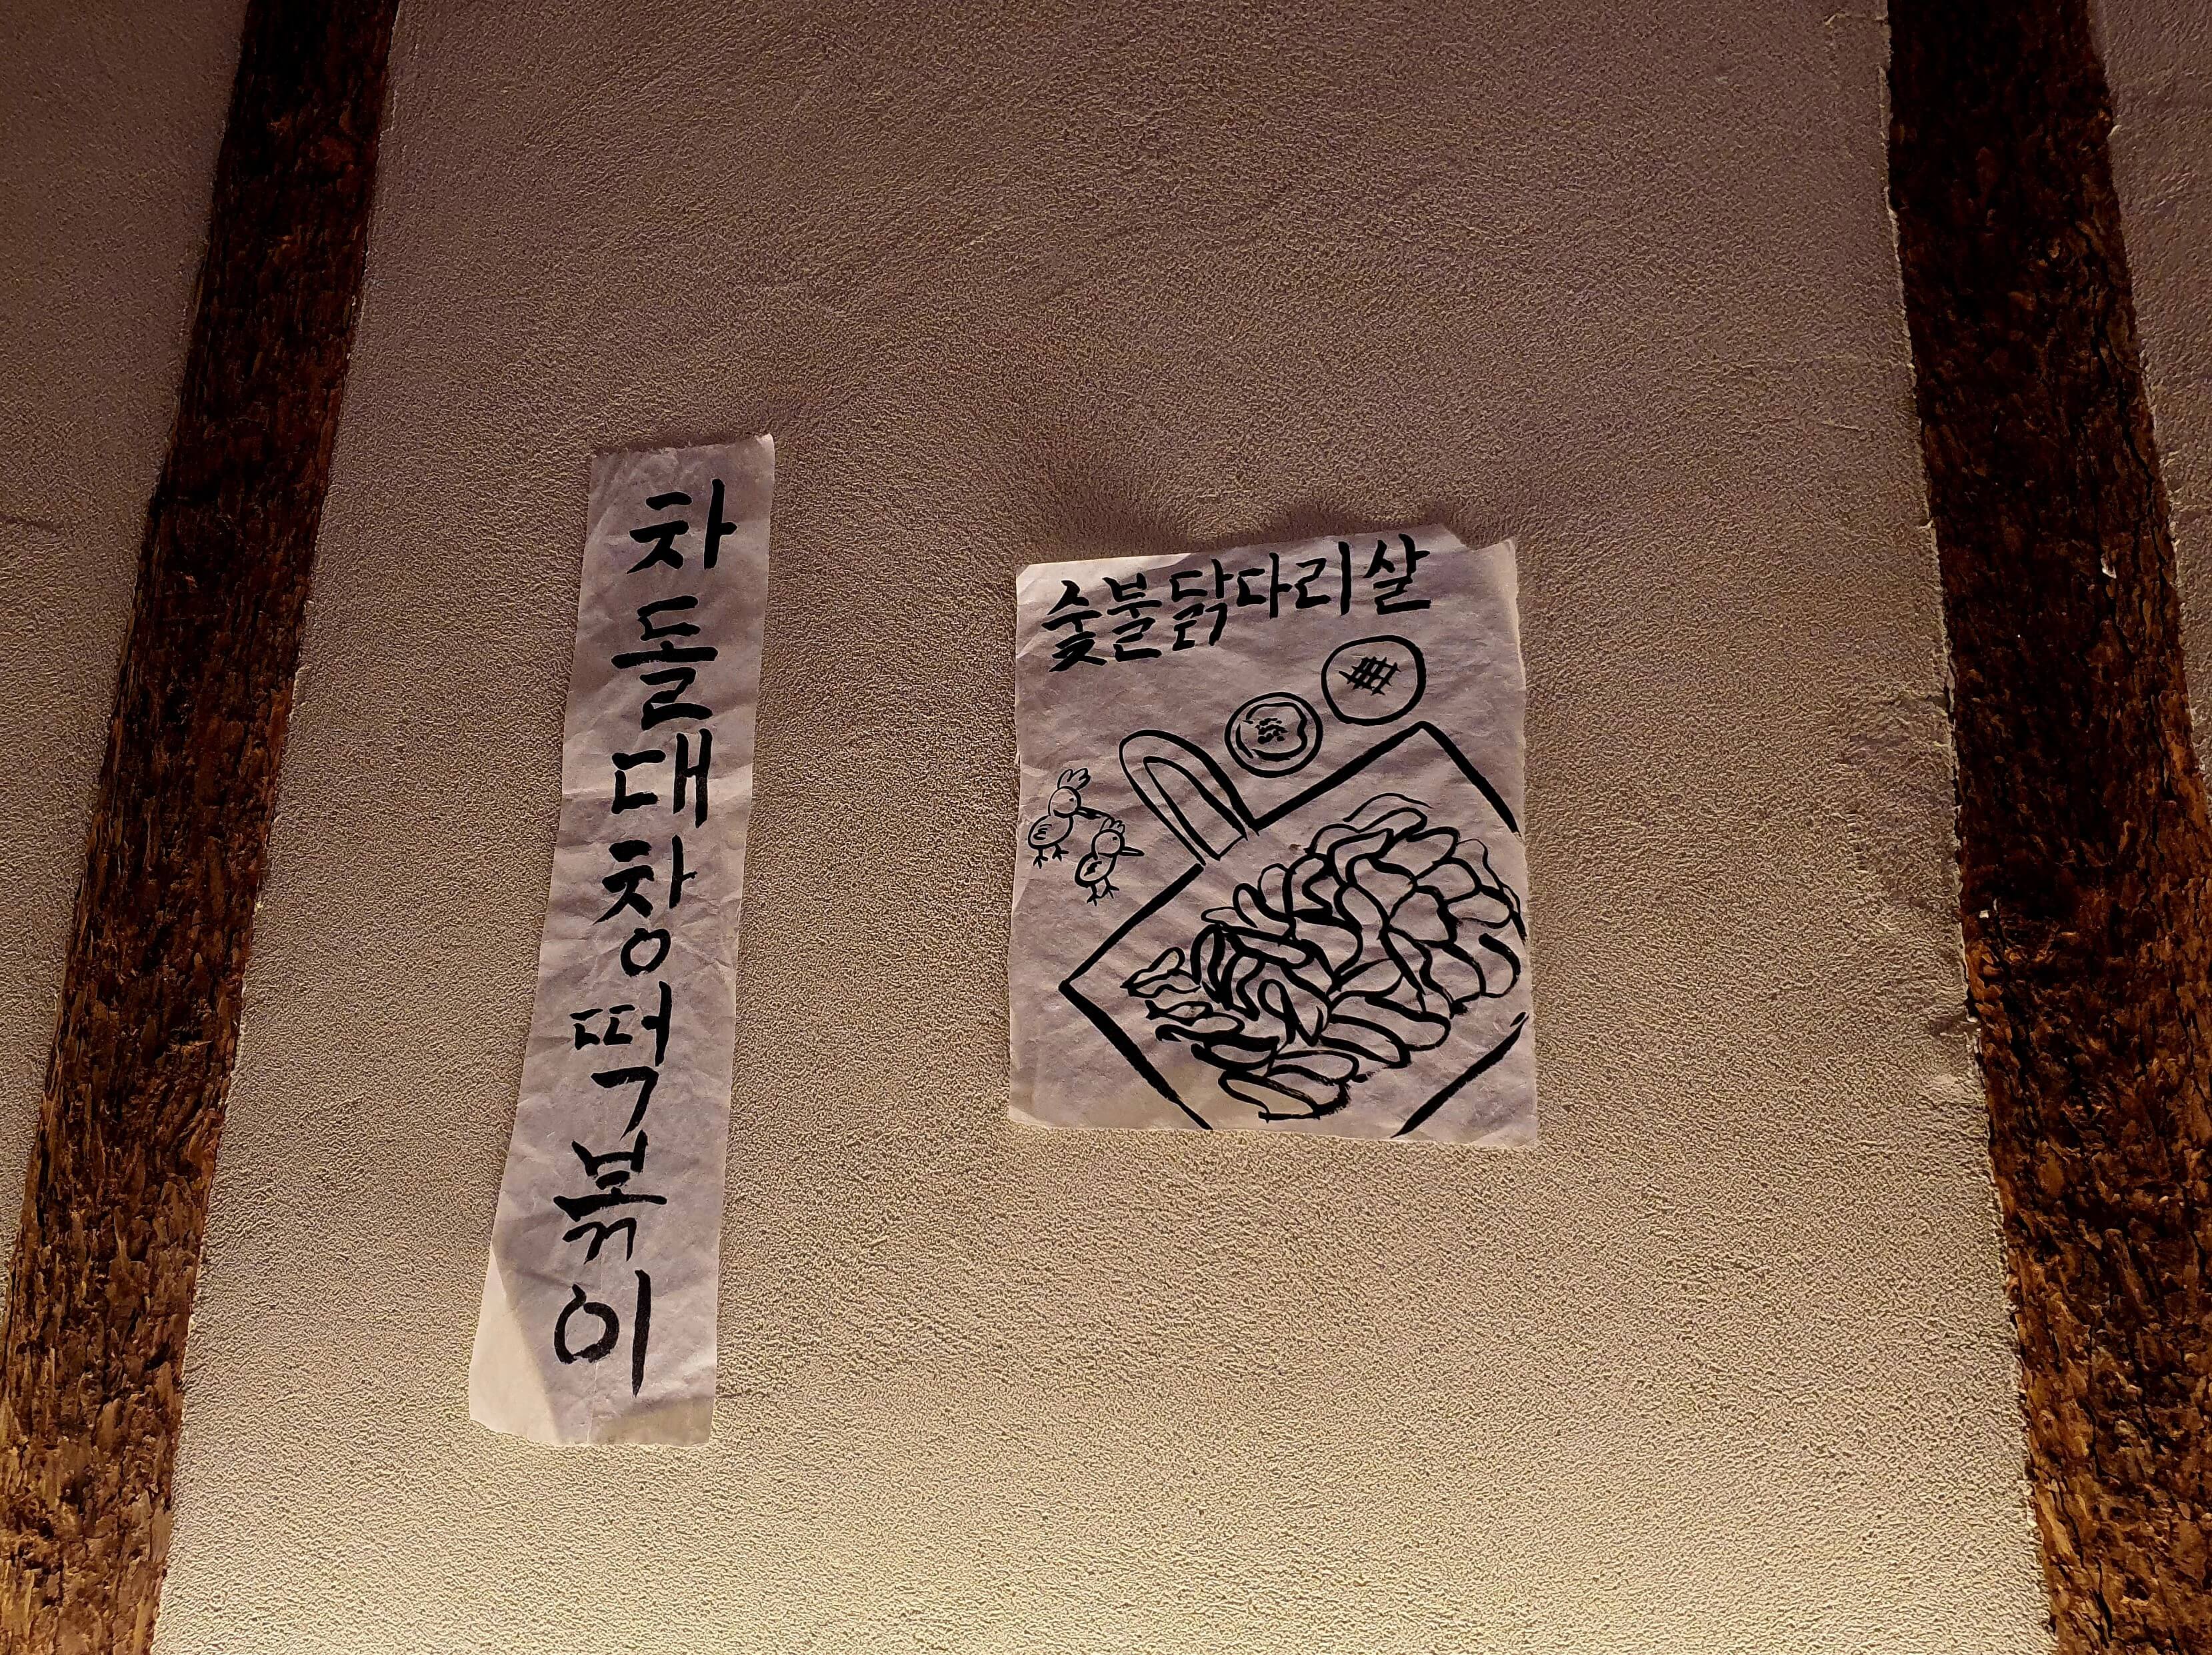 차돌대창떡볶이
숯불닭다리살